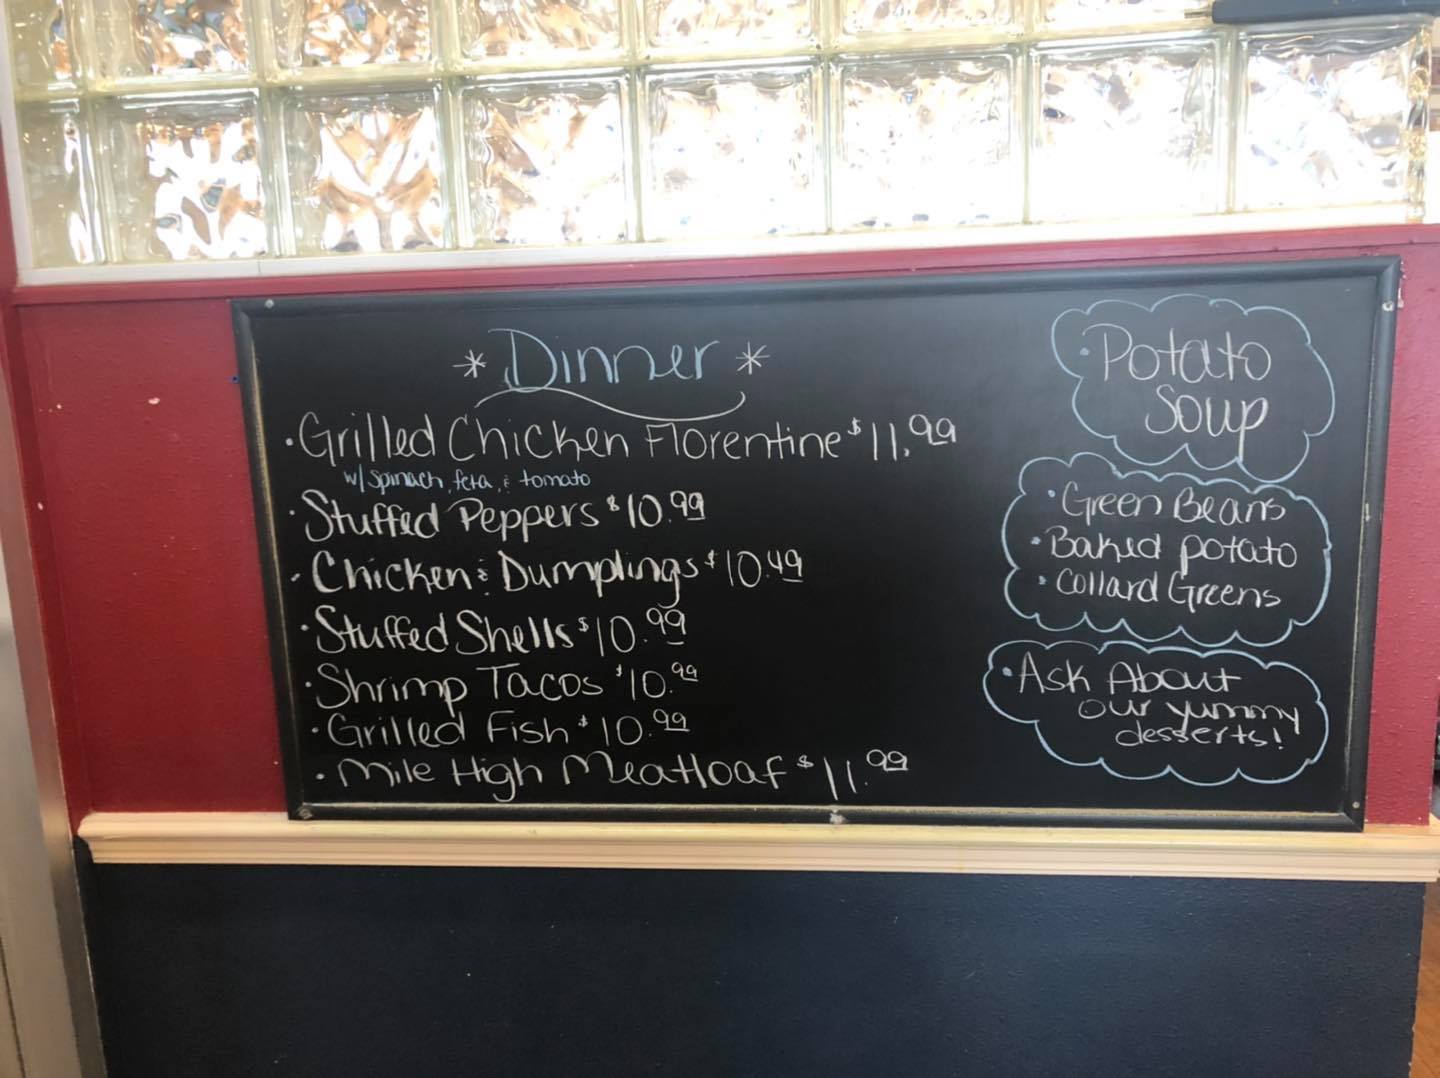 * Dinner *
• Grilled Chicken Florentine $11.99
w/ Spinach, feta, & tomato
• Stuffed Peppers $10.99
• Chicken & Dumplings $10.49
• Stuffed Shells $10.99
• Shrimp Tacos $10.99
• Grilled Fish $10.99
• Mile High Meatloaf $11.99
• Potato
Soup
• Green Beans
• Baked potato
• Collard Greens
• Ask About
our yummy
desserts!